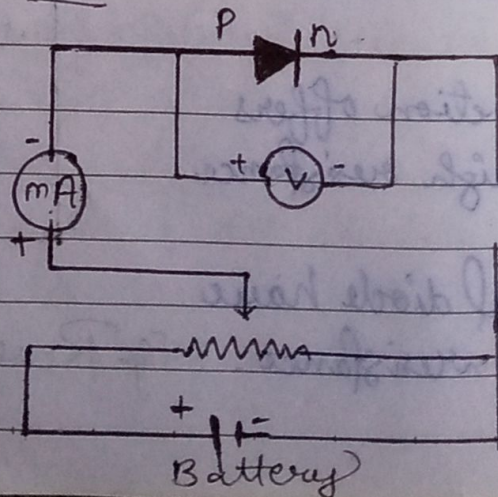 P n
-
+ V -
mA
+
+ -
Battery